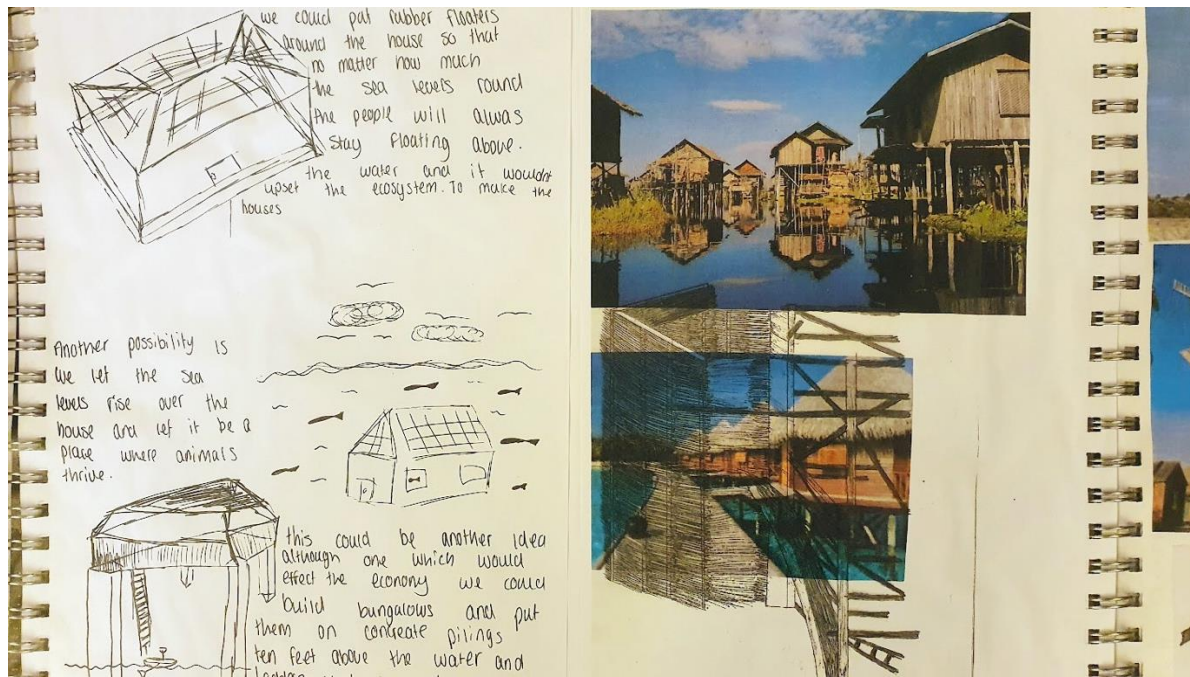 we could pat rubber floaters
around the house so that
no matter how much
the sea levels round
the people will alwas
stay floating above.
the water and it wouldnt
upset the ecosystem. To make the
houses
Another possibility is
we let the sea
levels rise over the
house and let it be a
place where animals
thrive.
this could be another idea
although one which would
effect the economy we could
build bungalows and put
them on concreate pilings
ten feet above the water and